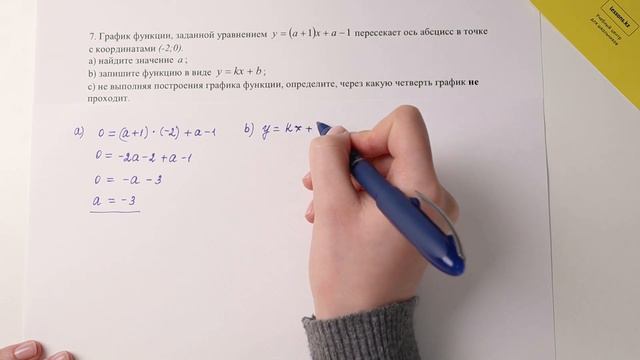 7. График функции, заданной уравнением y = (a+1)x + a − 1 пересекает ось абсцисс в точке
с координатами (-2;0).
a) найдите значение a ;
b) запишите функцию в виде y = kx + b ;
c) не выполняя построения графика функции, определите, через какую четверть график не
проходит.
a) 0 = (a+1) · (-2) + a - 1
0 = -2a - 2 + a - 1
0 = -a - 3
a = -3
b) y = kx +
Учебный центр
для школьников